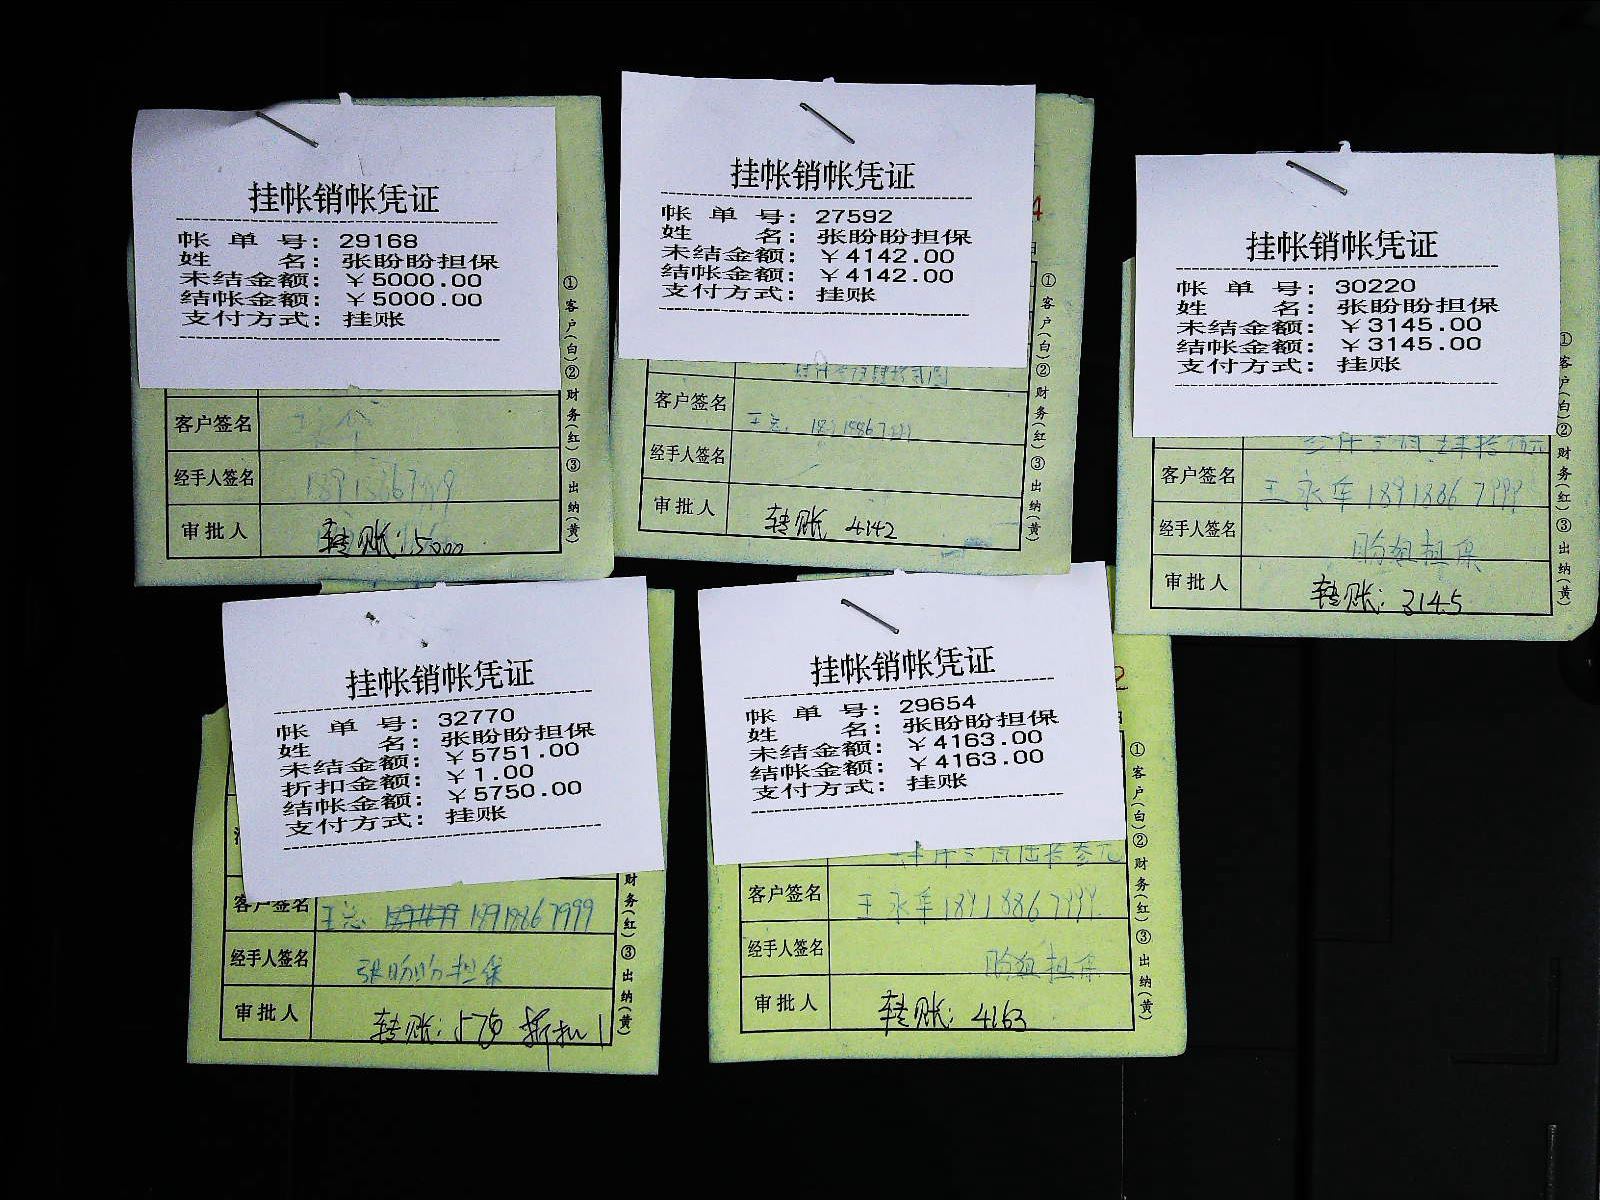 挂帐销帐凭证
帐单号：29168
姓名：张盼盼担保
未结金额：￥5000.00
结帐金额：￥5000.00
支付方式：挂账
客户签名
经手人签名
审批人 转账：5000
①客户(白)②财务(红)③出纳(黄)
挂帐销帐凭证
帐单号：27592
姓名：张盼盼担保
未结金额：￥4142.00
结帐金额：￥4142.00
支付方式：挂账
客户签名 王总
经手人签名
审批人 转账 4142
①客户(白)②财务(红)③出纳(黄)
挂帐销帐凭证
帐单号：30220
姓名：张盼盼担保
未结金额：￥3145.00
结帐金额：￥3145.00
支付方式：挂账
客户签名 王永军 18918867999
经手人签名 盼姐担保
审批人 转账：3145
①客户(白)②财务(红)③出纳(黄)
挂帐销帐凭证
帐单号：32770
姓名：张盼盼担保
未结金额：￥5751.00
折扣金额：￥1.00
结帐金额：￥5750.00
支付方式：挂账
客户签名 王总 18918867999
经手人签名 张盼盼担保
审批人 转账：5750 折扣1
财务(红)③出纳(黄)
挂帐销帐凭证
帐单号：29654
姓名：张盼盼担保
未结金额：￥4163.00
结帐金额：￥4163.00
支付方式：挂账
客户签名 王永军 18918867999
经手人签名 盼姐担保
审批人 转账：4163
①客户(白)②财务(红)③出纳(黄)